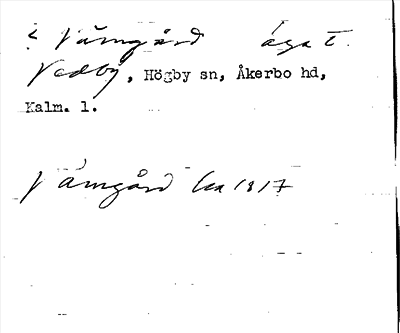 ? Jämgård äga t.
Vedby, Högby sn, Åkerbo hd,
Kalm. l.
Jämgård Ca 1817